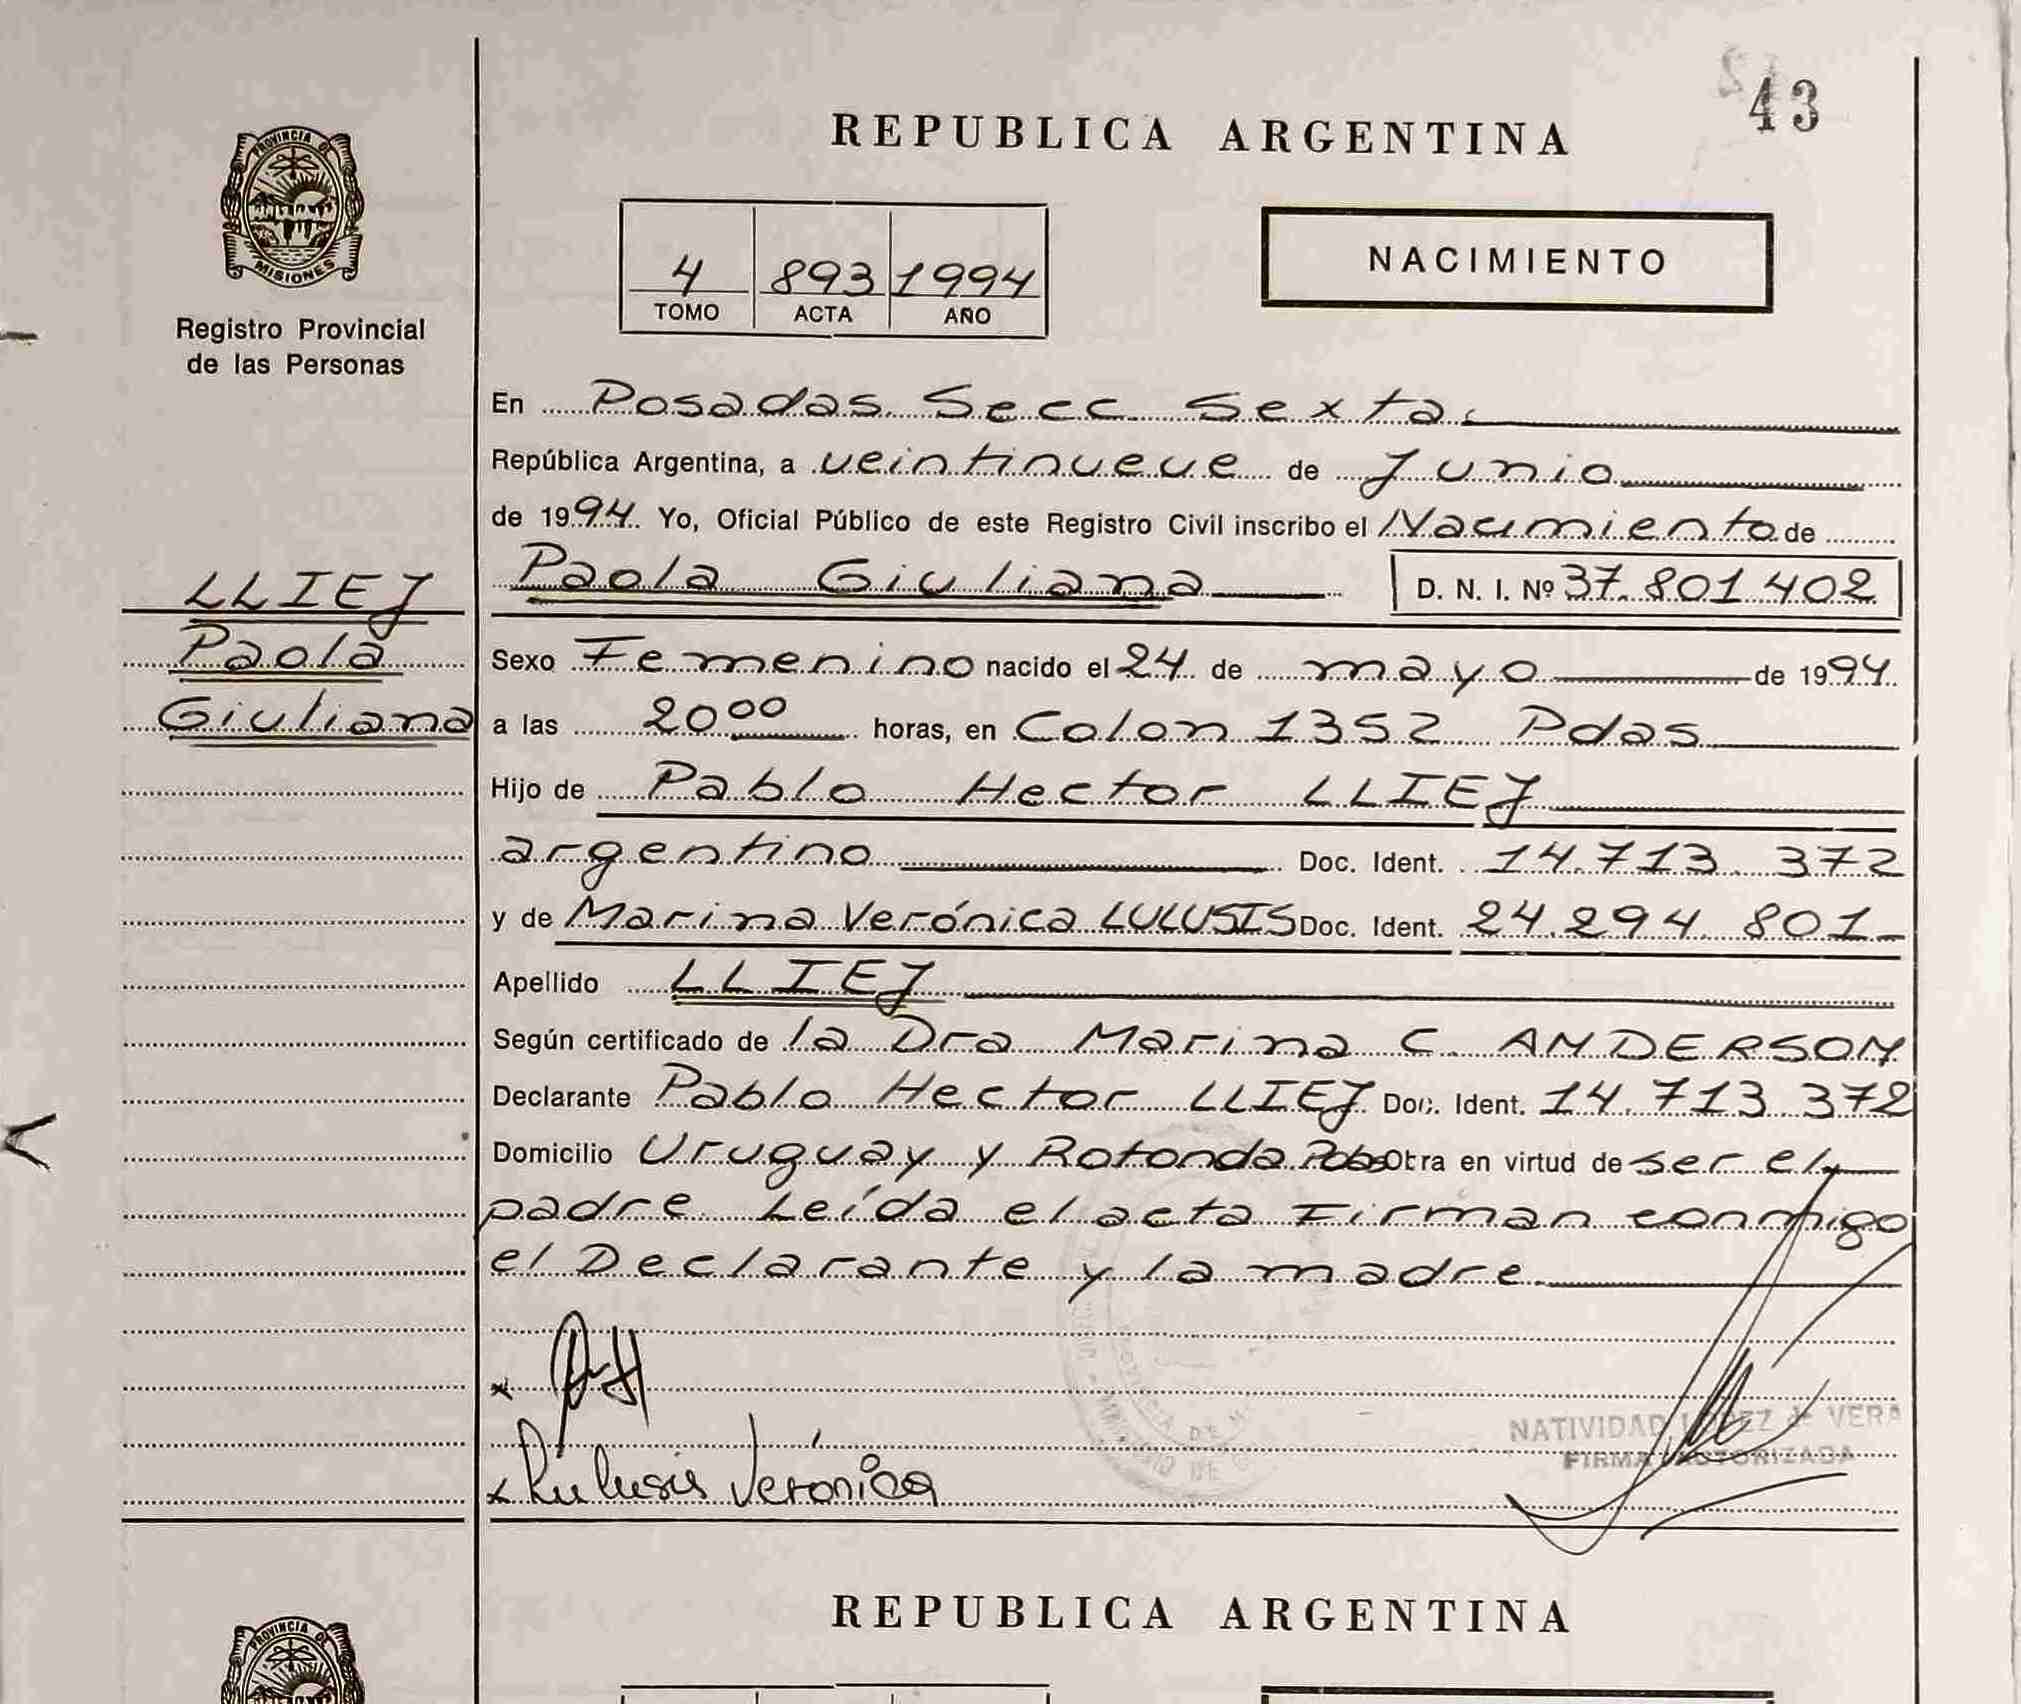 43
REPUBLICA ARGENTINA
PROVINCIA DE
MISIONES
Registro Provincial
de las Personas
4 893 1994
TOMO ACTA AÑO
NACIMIENTO
En Posadas Secc Sexta
República Argentina, a veintinueve de Junio
de 1994 Yo, Oficial Público de este Registro Civil inscribo el Nacimiento de
Paola Giuliana D. N. I. Nº 37.801.402
LLIEJ
Paola
Giuliana
Sexo Femenino nacido el 24 de mayo de 1994
a las 20 00 horas, en Colon 1352 Pdas
Hijo de Pablo Hector LLIEJ
argentino Doc. Ident. 14.713.372
y de Marina Verónica LULUSIS Doc. Ident. 24.294.801
Apellido LLIEJ
Según certificado de la Dra Marina C. ANDERSON
Declarante Pablo Hector LLIEJ Doc. Ident. 14.713.372
Domicilio Uruguay y Rotonda Pdas Obra en virtud de ser el
padre. Leída el acta Firman conmigo
el Declarante y la madre.
x
x Lulusis Verónica
NATIVIDAD LOPEZ de VERA
FIRMA AUTORIZADA
REPUBLICA ARGENTINA
PROVINCIA DE